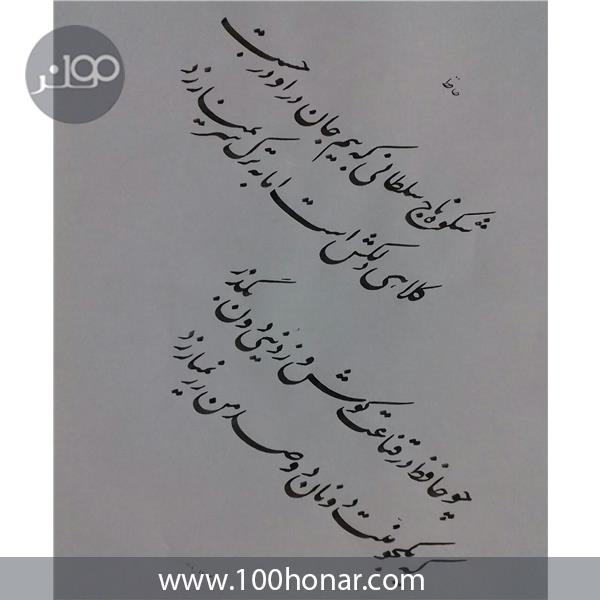 حافظ
شکوه تاج سلطانی که بیم جان در او درجست
کلاهی دلکش است اما به ترک سر نمیارزد
چو حافظ در قناعت کوش و از دنیی دون بگذر
که یکجو منت دونان دو صد من زر نمیارزد
www.100honar.com